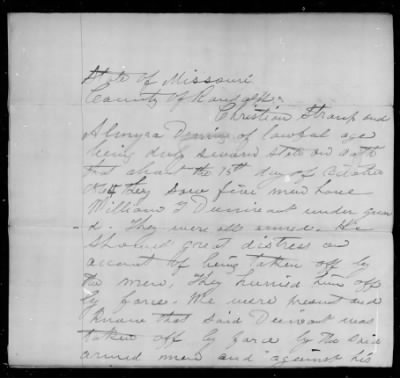 State of Missouri
County of Randolph
Christian Stramp and
Almyra Deming of lawful age
being duly sworn state on oath
that about the 15th day of October
1864 they saw five men have
William T Dunivant under guar
d. They were all armed. He
showed great distress on
account of being taken off by
the men, They hurried him off
by force. We were present and
know that said Dunivant was
taken off by force by the said
armed men and against his